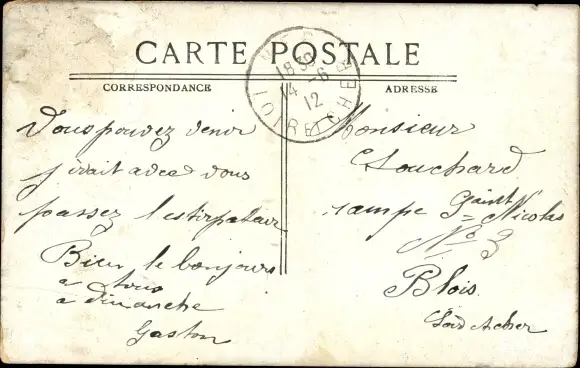 CARTE POSTALE
CORRESPONDANCE
ADRESSE
18 30
14 - 6
12
LOIR ET CHER
Vous pouvez venir
j'irait avec vous
passez l'estirpateur
Bien le bonjours
a tous
a dimanche
Gaston
Monsieur
Clouchard
rampe Saint
Nicolas
No 3
Blois
Loir et cher